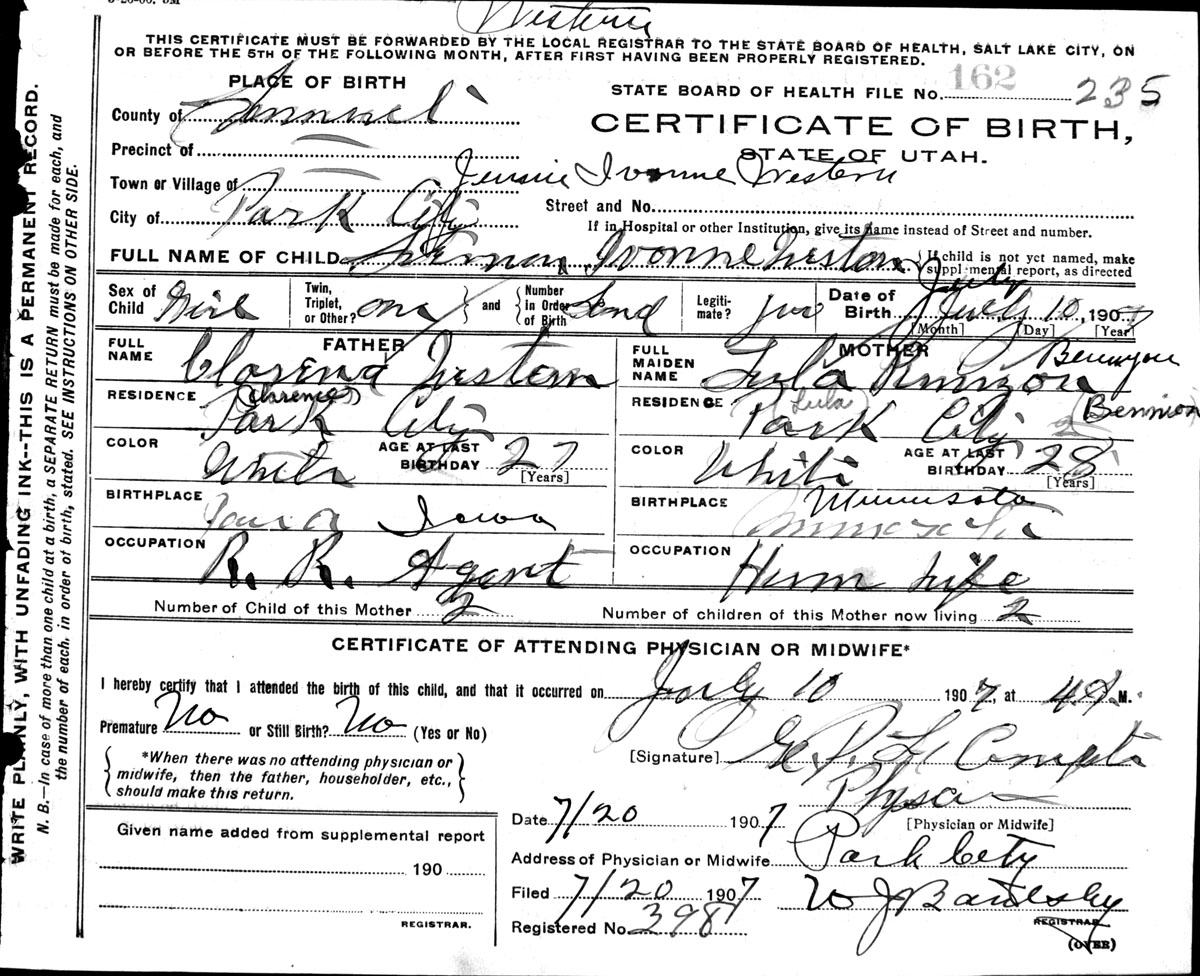 Western
THIS CERTIFICATE MUST BE FORWARDED BY THE LOCAL REGISTRAR TO THE STATE BOARD OF HEALTH, SALT LAKE CITY, ON
OR BEFORE THE 5TH OF THE FOLLOWING MONTH, AFTER FIRST HAVING BEEN PROPERLY REGISTERED.
PLACE OF BIRTH
STATE BOARD OF HEALTH FILE No. 162 235
County of
CERTIFICATE OF BIRTH,
STATE OF UTAH.
Precinct of
Town or Village of Ivonne Western
City of Park City
Street and No.
If in Hospital or other Institution, give its name instead of Street and number.
FULL NAME OF CHILD Ivonne Weston
{If child is not yet named, make supplemental report, as directed
Sex of Child Girl
Twin, Triplet, or Other? one } and { Number in Order of Birth
Legitimate?
Date of Birth July July 10, 1907
[Month] [Day] [Year]
FATHER
FULL NAME Western
(Clarence)
RESIDENCE Park City
COLOR White
AGE AT LAST BIRTHDAY 27
[Years]
BIRTHPLACE Iowa
OCCUPATION R. R. Agent
MOTHER
FULL MAIDEN NAME Lula
Bennyon
RESIDENCE Park City
(Lula) (Bennion)
COLOR White
AGE AT LAST BIRTHDAY 28
[Years]
BIRTHPLACE Minnesota
OCCUPATION
Number of Child of this Mother 2
Number of children of this Mother now living 2
CERTIFICATE OF ATTENDING PHYSICIAN OR MIDWIFE*
I hereby certify that I attended the birth of this child, and that it occurred on July 10 1907, at 4 A.M.
Premature No or Still Birth? No (Yes or No)
{*When there was no attending physician or midwife, then the father, householder, etc., should make this return.}
[Signature]
[Physician or Midwife]
Date 7/20 1907
Address of Physician or Midwife Park City
Filed 7/20 1907 W J Bardsley
REGISTRAR.
Registered No. 398
(OVER)
Given name added from supplemental report
190
REGISTRAR.
WRITE PLAINLY, WITH UNFADING INK--THIS IS A PERMANENT RECORD.
N. B.—In case of more than one child at a birth, a SEPARATE RETURN must be made for each, and
the number of each, in order of birth, stated. SEE INSTRUCTIONS ON OTHER SIDE.